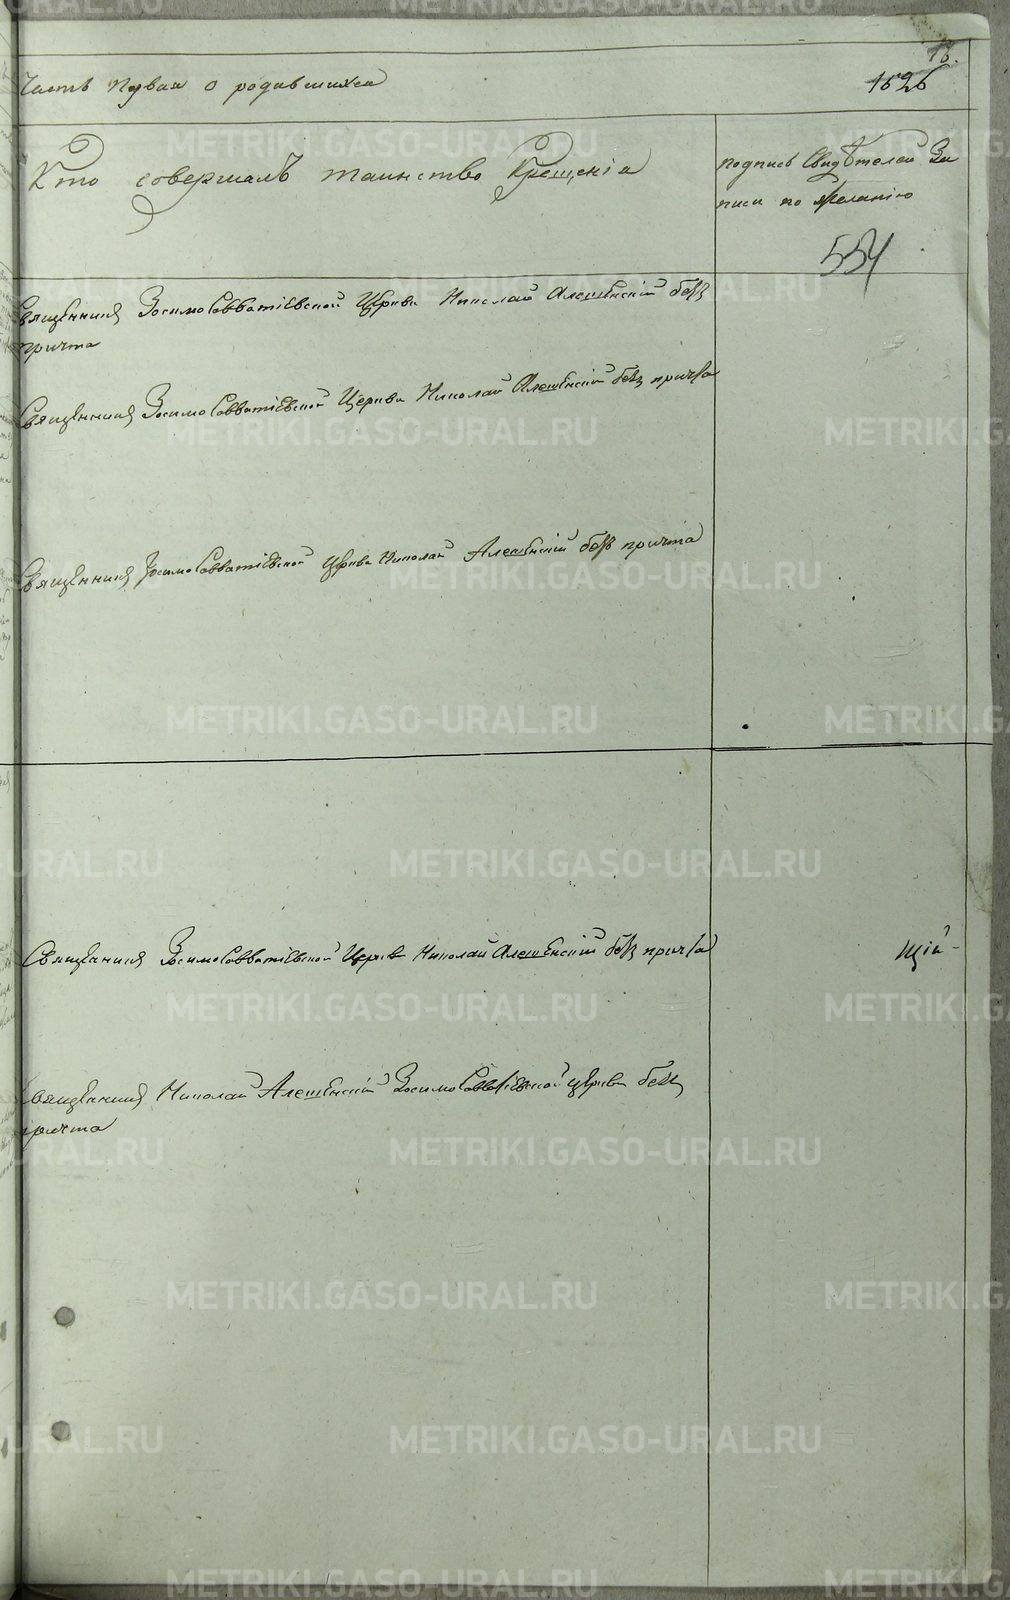 13.
1526
Часть Первая о родившихся
Кто совершалъ таинство Крещенія
подпись Свидѣтелей За
писи по желанію
554
Священникъ Зосимо Савватіевской Церкви Николай Алешенскій безъ
причта
Священникъ Зосимо Савватіевской Церкви Николай Алешенскій безъ причта
Священникъ Зосимо Савватіевской Церкви Николай Алешенскій безъ причта
Священникъ Зосимо Савватіевской Церкви Николай Алешенскій безъ причта
щій
Священникъ Николай Алешенскій Зосимо Савватіевской Церкви безъ
причта
METRIKI.GASO-URAL.RU